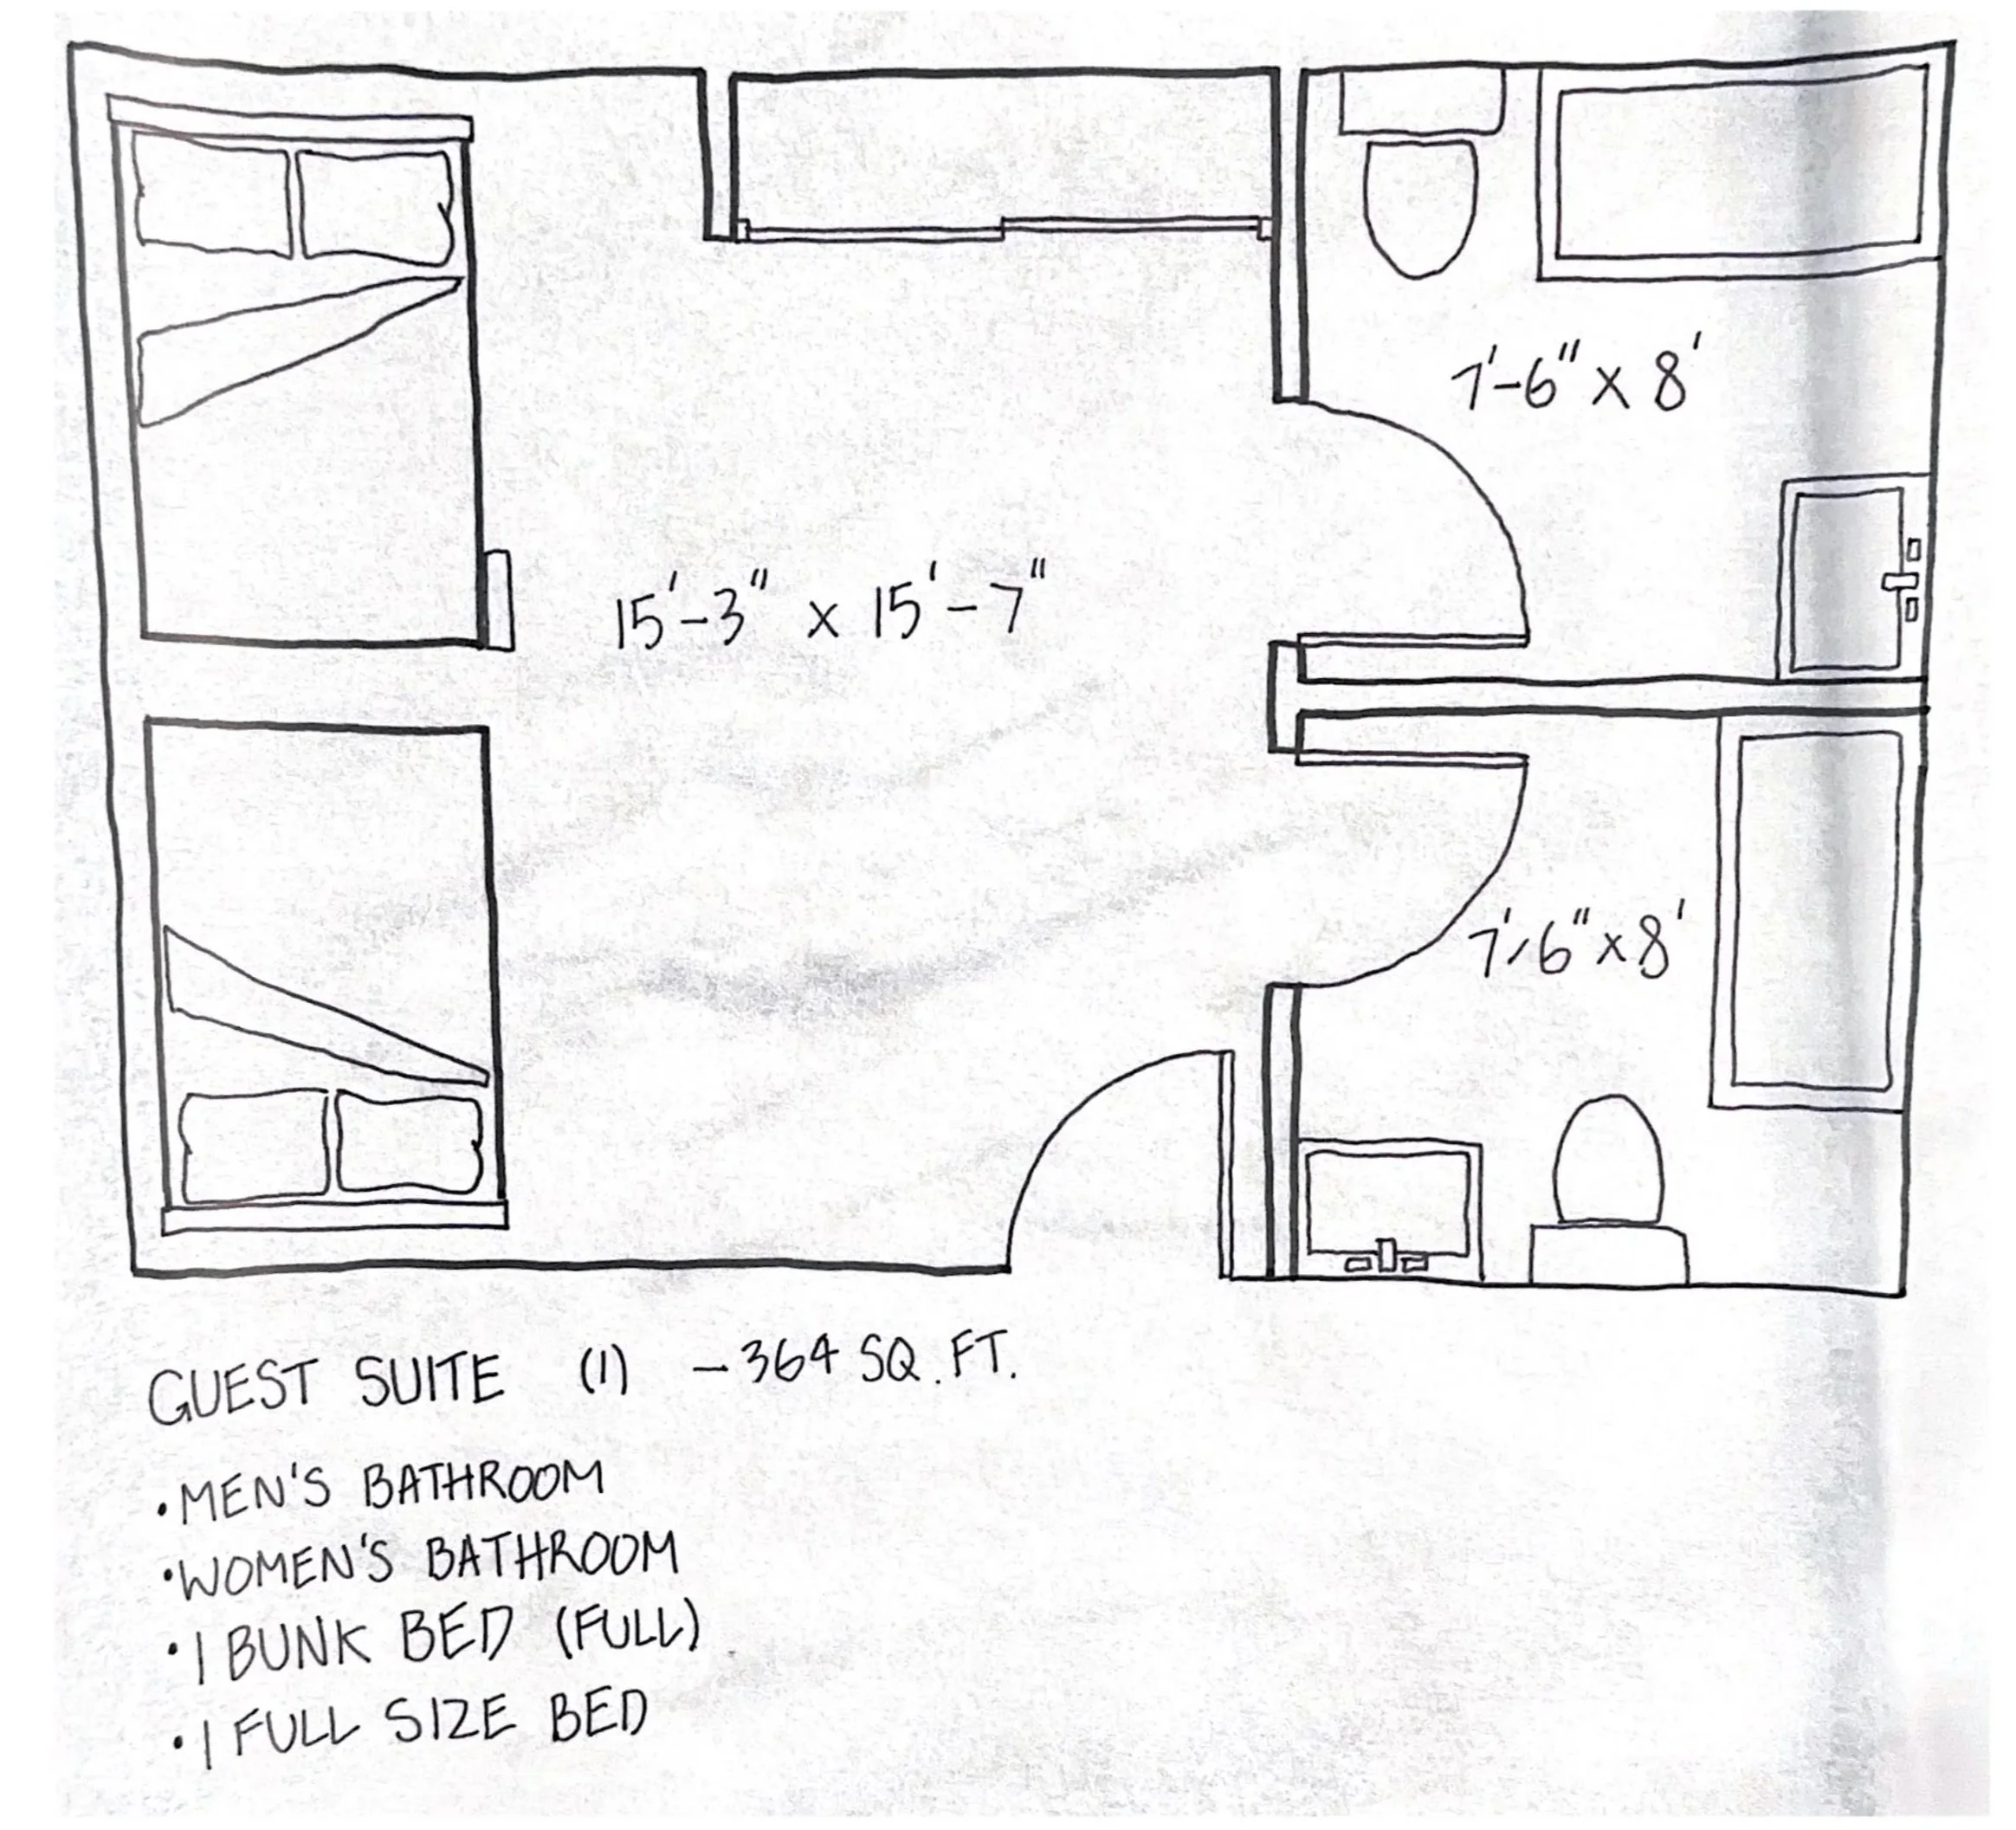 7'-6" x 8'
15'-3" x 15'-7"
7'-6" x 8'
GUEST SUITE (1) - 364 SQ. FT.
• MEN'S BATHROOM
• WOMEN'S BATHROOM
• 1 BUNK BED (FULL)
• 1 FULL SIZE BED